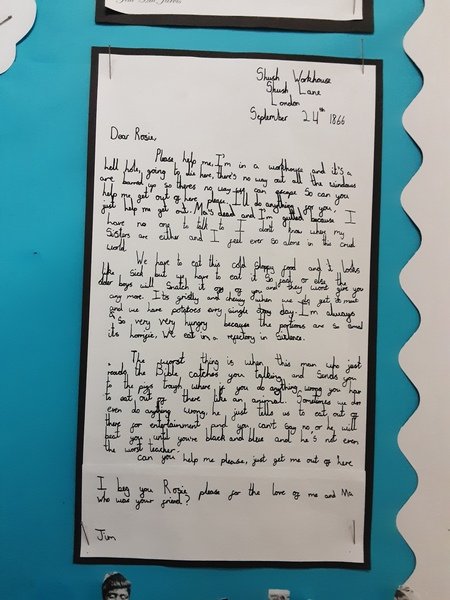 Shush Workhouse
Skush Lane
London
September 24th 1866
Dear Rosie,
Please help me, I'm in a workhouse and it's a
hell hole, going to die here, there's no way out all the windows
are barred up so theres no way we can escape. So can you
help me get out of here please, I'll do anything for you,
just help me get out. Ma's dead and I'm gutted because I
have no one to talk to I don't know where my
Sisters are either and I feel ever so alone in this cruel
world.
We have to eat this cold sloppy food and it looks
like sick but you have to eat it so fast or else the
older boys will snatch it off of you and they wont give you
any more. Its gristly and chewy when we do get some
and we have potatoes every single day. I'm always
so very very hungry because the portions are so small
its horrible, we eat in a refectory in silence.
The worst thing is when this man who just
reads the Bible catches you talking and sends you
to the pigs trough where if you do anything wrong you have
to eat out of there like an animal. Sometimes we don't
even do anything wrong, he just tells us to eat out of
there for entertainment and you can't say no or he will
beat you until you're black and blue and he's not even
the worst teacher.
can you help me please, just get me out of here
I beg you Rosie please for the love of me and Ma
who was your friend?
Jim